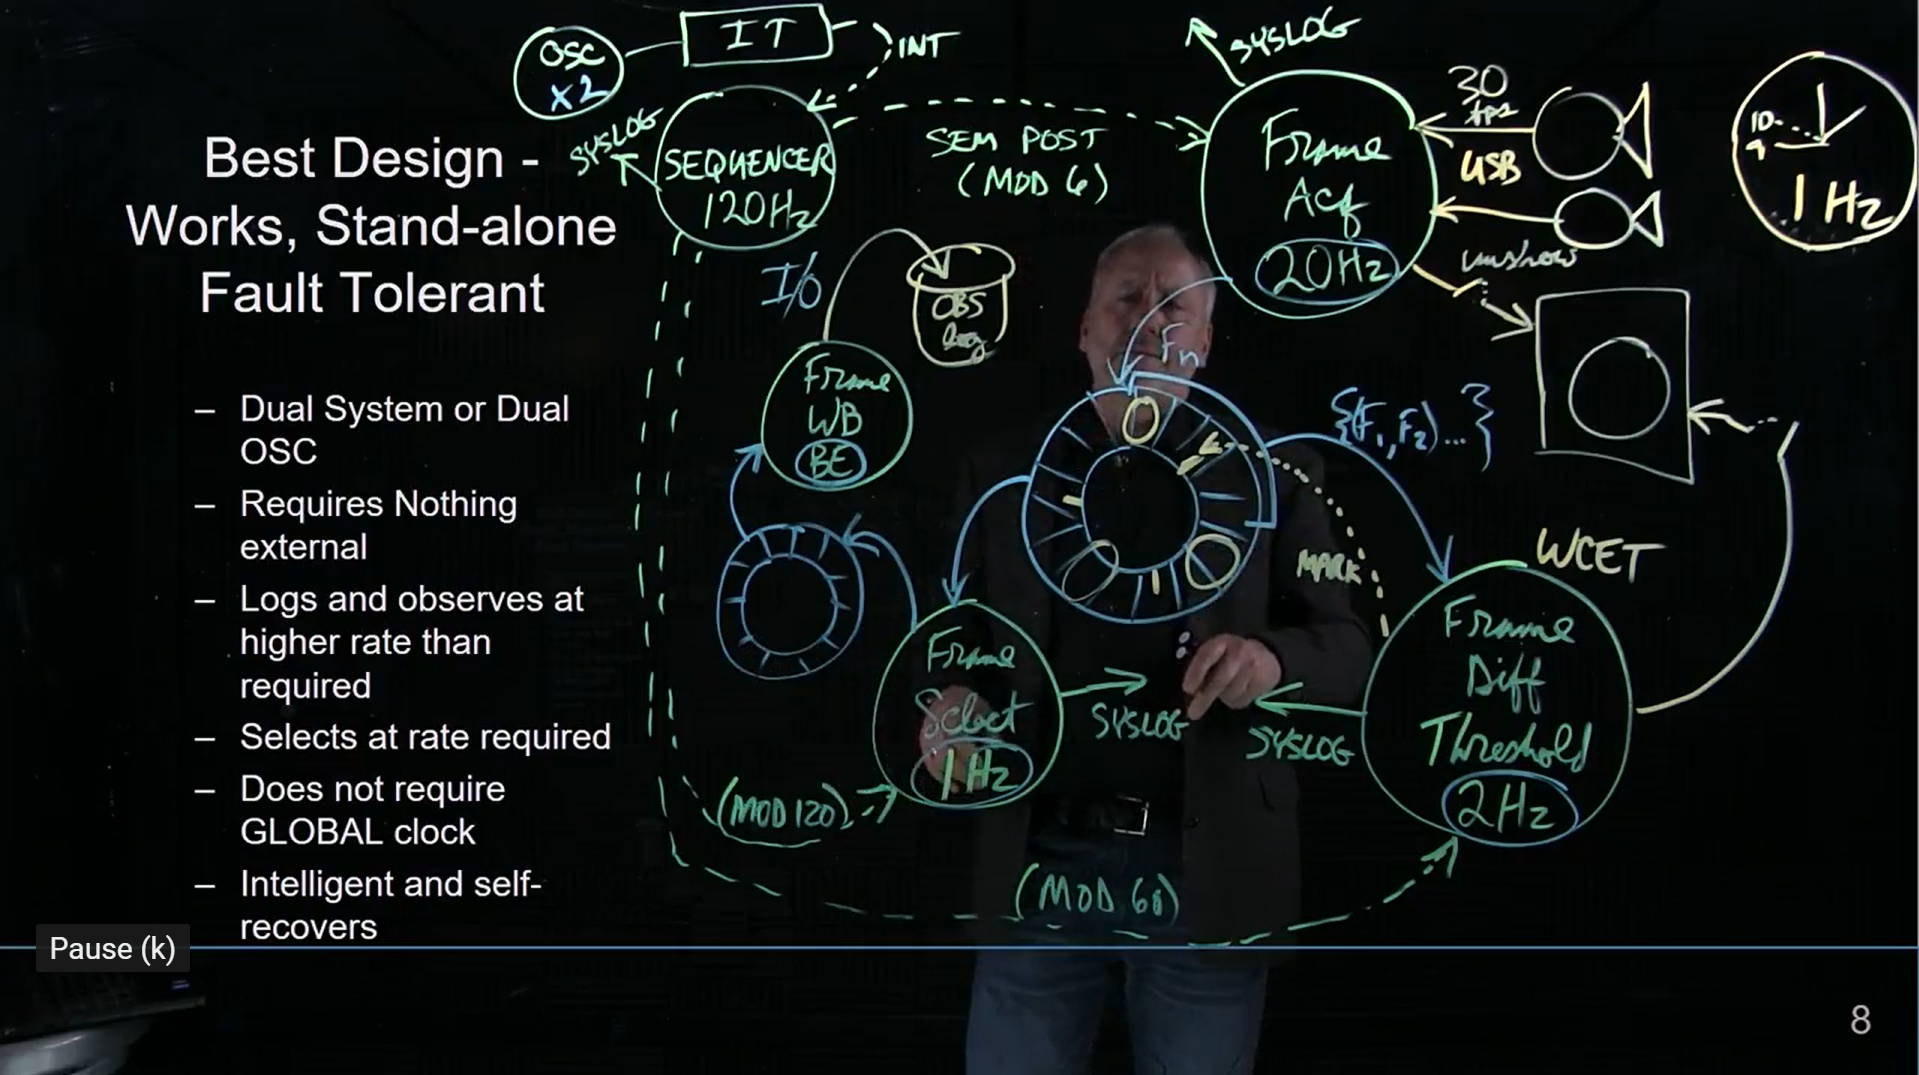 Best Design -
Works, Stand-alone
Fault Tolerant
– Dual System or Dual
OSC
– Requires Nothing
external
– Logs and observes at
higher rate than
required
– Selects at rate required
– Does not require
GLOBAL clock
– Intelligent and self-
recovers
Pause (k)
OSC
x2
IT
INT
SYSLOG
SEQUENCER
120Hz
SEM POST
(MOD 6)
SYSLOG
Frame
Acq
20Hz
30
fps
USB
10
9
1 Hz
I/O
OBS
log
Frame
WB
BE
Fn
{(F1,F2)...}
WCET
MARK
Frame
Select
1Hz
SYSLOG
SYSLOG
Frame
Diff
Threshold
2Hz
(MOD 120)
(MOD 60)
8